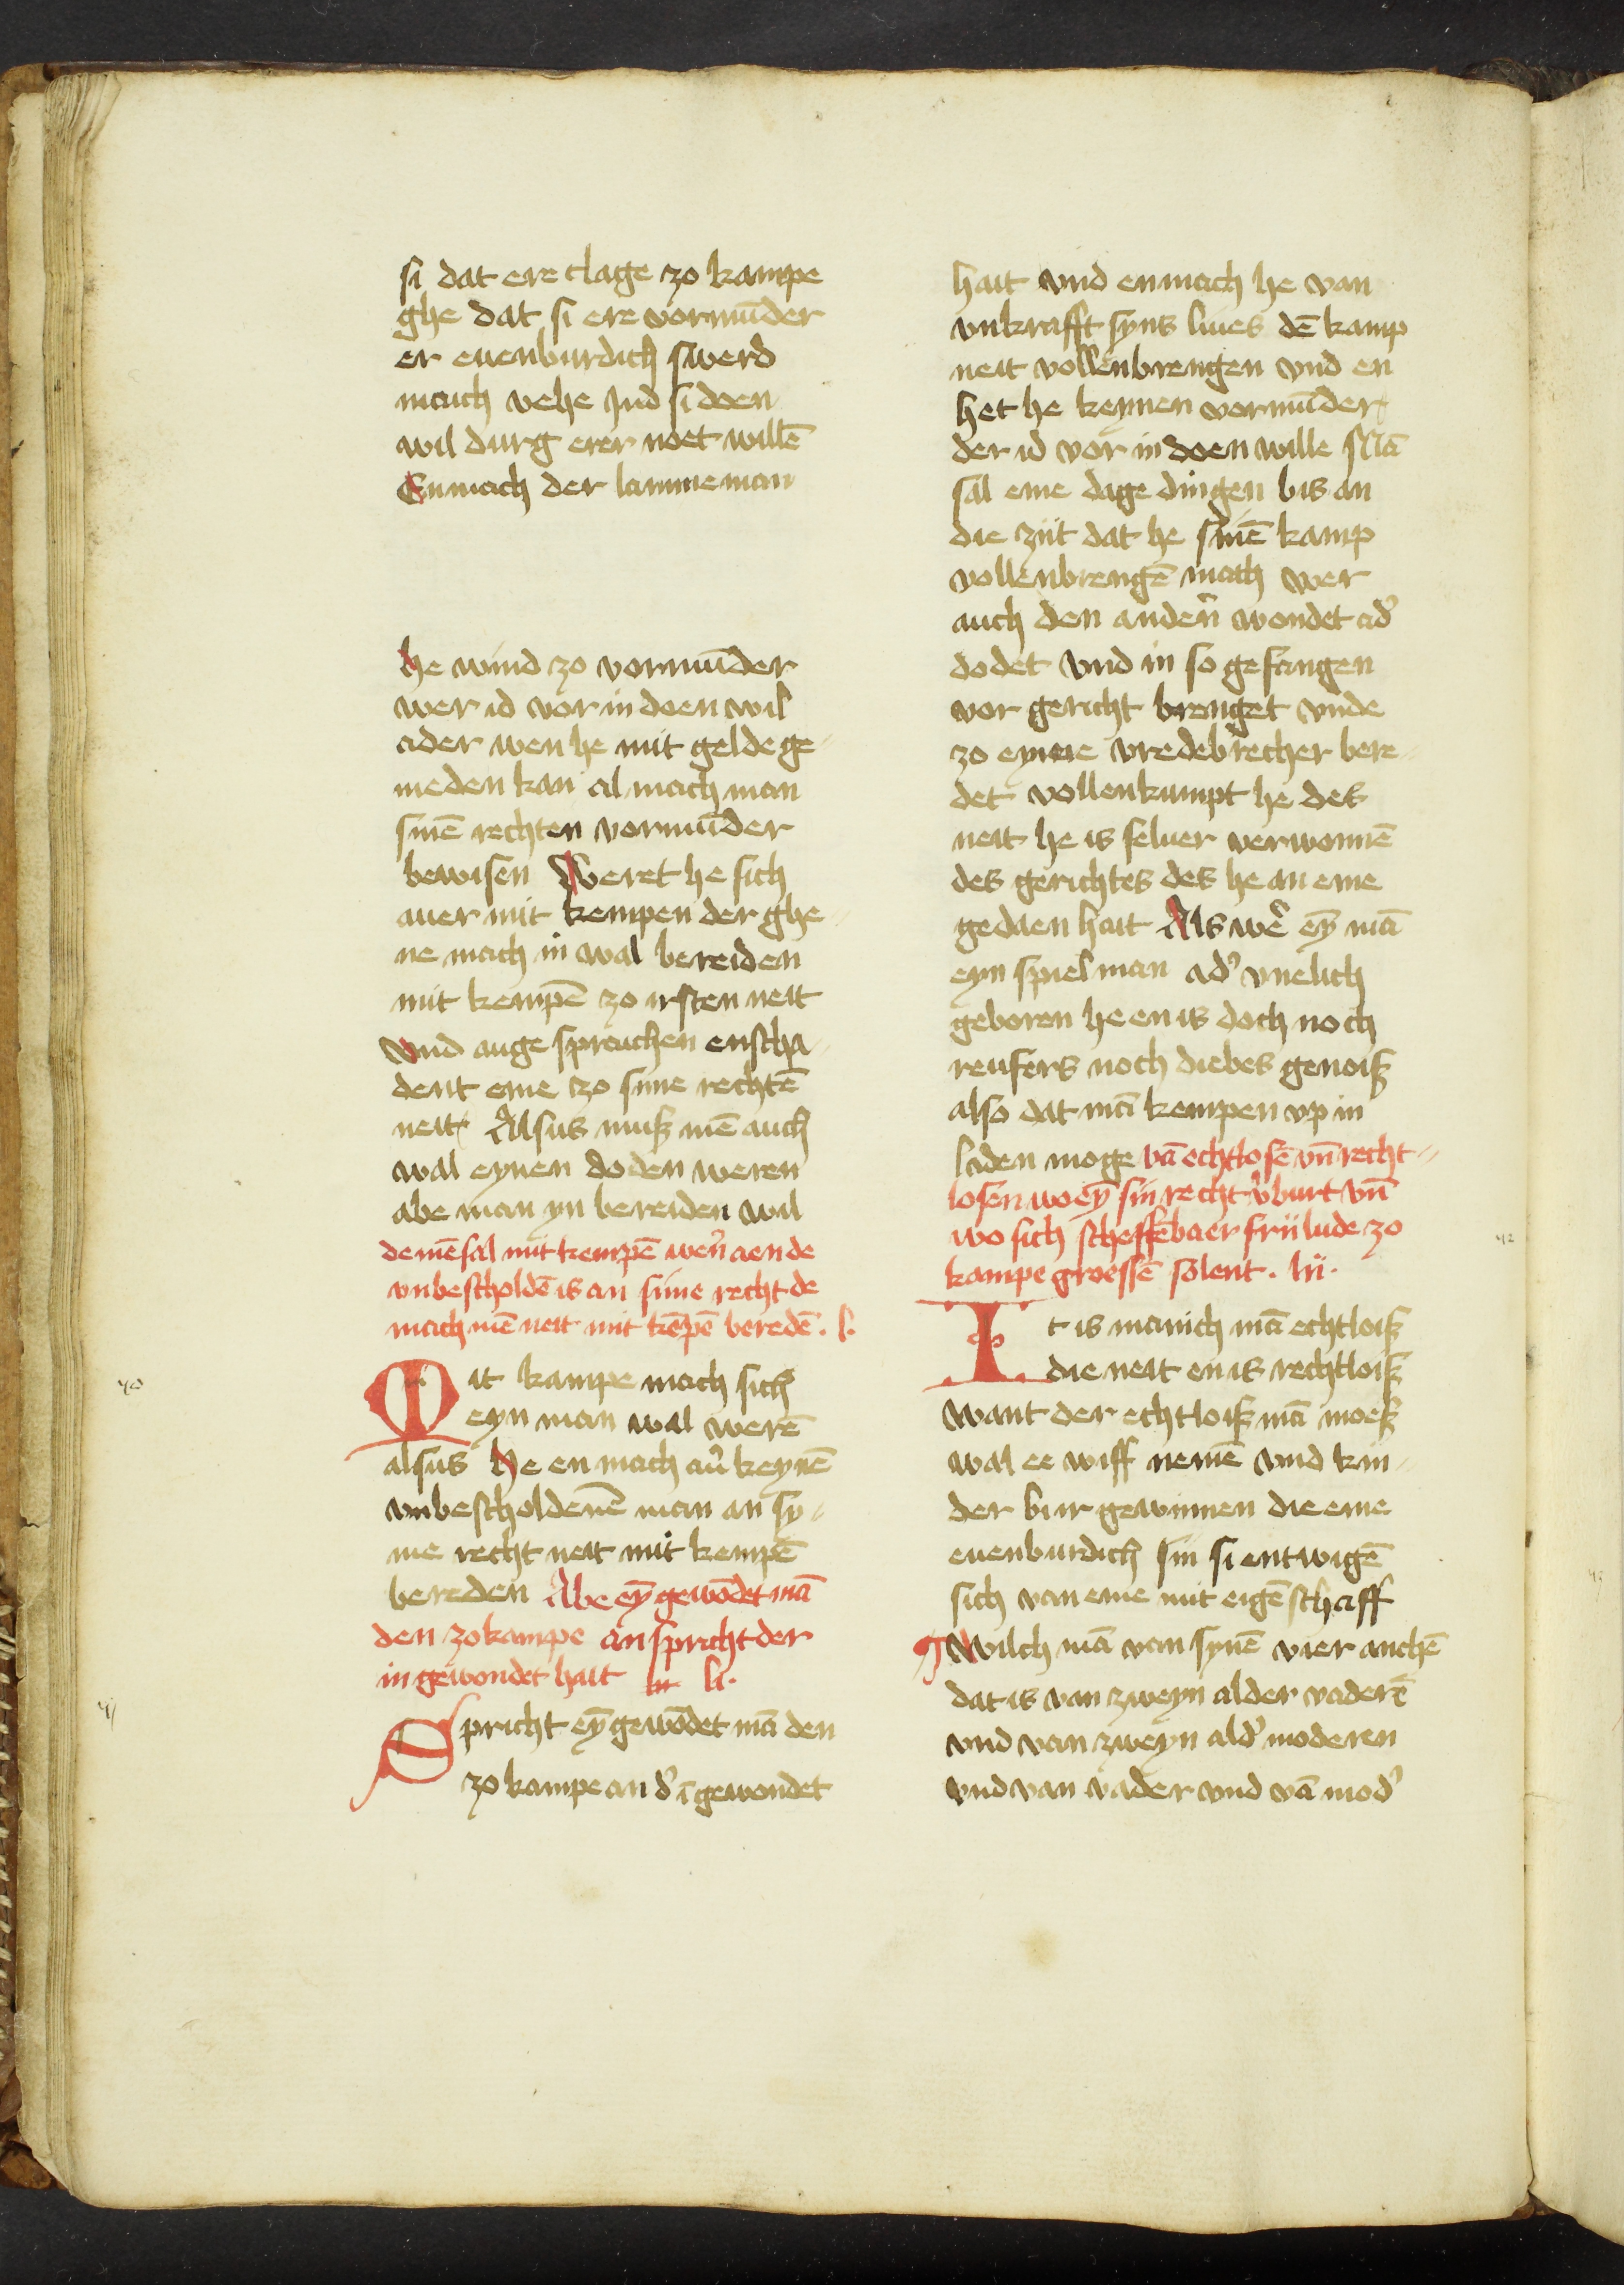 si dat ere clage zo kampe
ghe dat si ere vormūder
er euenburdich swerd
mach vehe Jnd si doen
wil durg erer noet willē
Enmach der lamme man
he wind zo vormūder
wer id vor in doen wil
ader wen he mit gelde ge
meden kan al mach man
sinē rechten vormūder
bewisen Weret he sich
auer mit kempen der ghe
ne mach in wal bereiden
mit kempē zo irsten neit
vnd auge sprachen enscha
dent eme zo sime rechtē
neit Alsus muß mē auch
wal eynen doden weren
abe man yn bereiden wil
de mē sal mit kempē
vnbescholdē is an sime recht de
mach mē neit mit kēpē beredē . l.
it kampe mach sich
eyn man wal werē
alsus He en mach au̓ keynē
vnbescholdenē man an sy
me recht neit mit kempē
bereden Abe eȳ gewōdet mā
den zo kampe an spricht der
in gewondet hait li.
Spricht eȳ gewōdet mā den
zo kampe an d̓ ī gewondet
hait vnd enmach he van
vnkrafft syns liues dē kamp
neit vollenbrengen vnd en
het he keynen vormūder
der id vor in doen wille Mā
sal eme dage dingen bis an
die zijt dat he sinē kamp
vollenbrengē mach wer
auch den anden̓ wondet ad̓
dodet vnd in so gefangen
vor gericht brenget vnde
zo eyme vredebrecher bere
det vollenkumpt he des
neit he is seluer verwonnē
des gerichtes des he an eme
gedaen hait Als we̓ eȳ mā
eyn spiel man ad̓ vnelich
geboren he en is doch noch
reufers noch diebes genoiß
also dat mā kempen vp in
laden moge vā echtlosē vn̄ recht
losen wo eȳ sin recht v̓burt vn̄
wo sich scheffēbaer frij lude zo
kampe groessē solent . lij.
It is manich mā echtloiß
die neit en is rechtloiß
want der echtloiß mā moeß
wal ee wiff nemē vnd kin
der bi ir gewinnen die eme
euenburdich sin si entwigē
sich van eme mit eigēschaff
Wilch mā van synē vier anchē
dat is van zweyn alder vaderē
vnd van zweyn ald̓ moderen
vnd van vader vnd vā mod̓